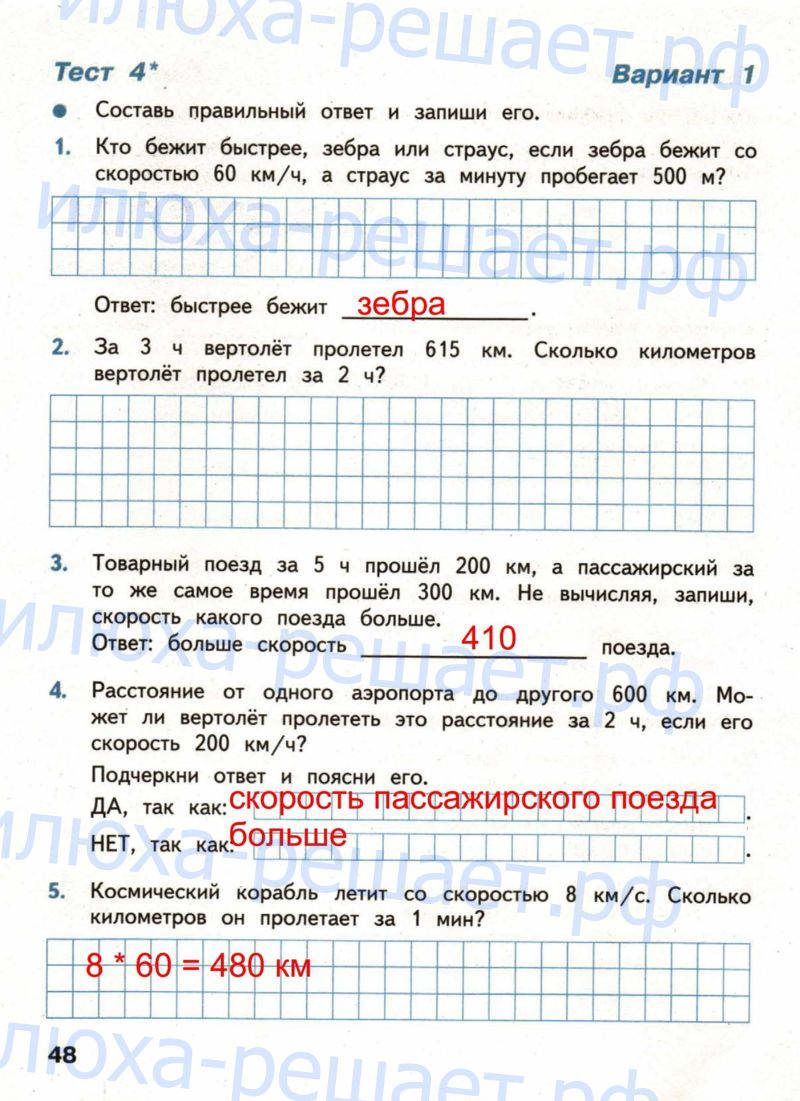 илюха-решает.рф
Тест 4* Вариант 1
• Составь правильный ответ и запиши его.
1. Кто бежит быстрее, зебра или страус, если зебра бежит со
скоростью 60 км/ч, а страус за минуту пробегает 500 м?
илюха-решает.рф
Ответ: быстрее бежит зебра.
2. За 3 ч вертолёт пролетел 615 км. Сколько километров
вертолёт пролетел за 2 ч?
3. Товарный поезд за 5 ч прошёл 200 км, а пассажирский за
то же самое время прошёл 300 км. Не вычисляя, запиши,
скорость какого поезда больше.
илюха-решает.рф
Ответ: больше скорость 410 поезда.
4. Расстояние от одного аэропорта до другого 600 км. Мо-
жет ли вертолёт пролететь это расстояние за 2 ч, если его
скорость 200 км/ч?
Подчеркни ответ и поясни его.
ДА, так как: скорость пассажирского поезда.
НЕТ, так как: больше.
илюха-решает.рф
5. Космический корабль летит со скоростью 8 км/с. Сколько
километров он пролетает за 1 мин?
8 * 60 = 480 км
48
илюха-решает.рф